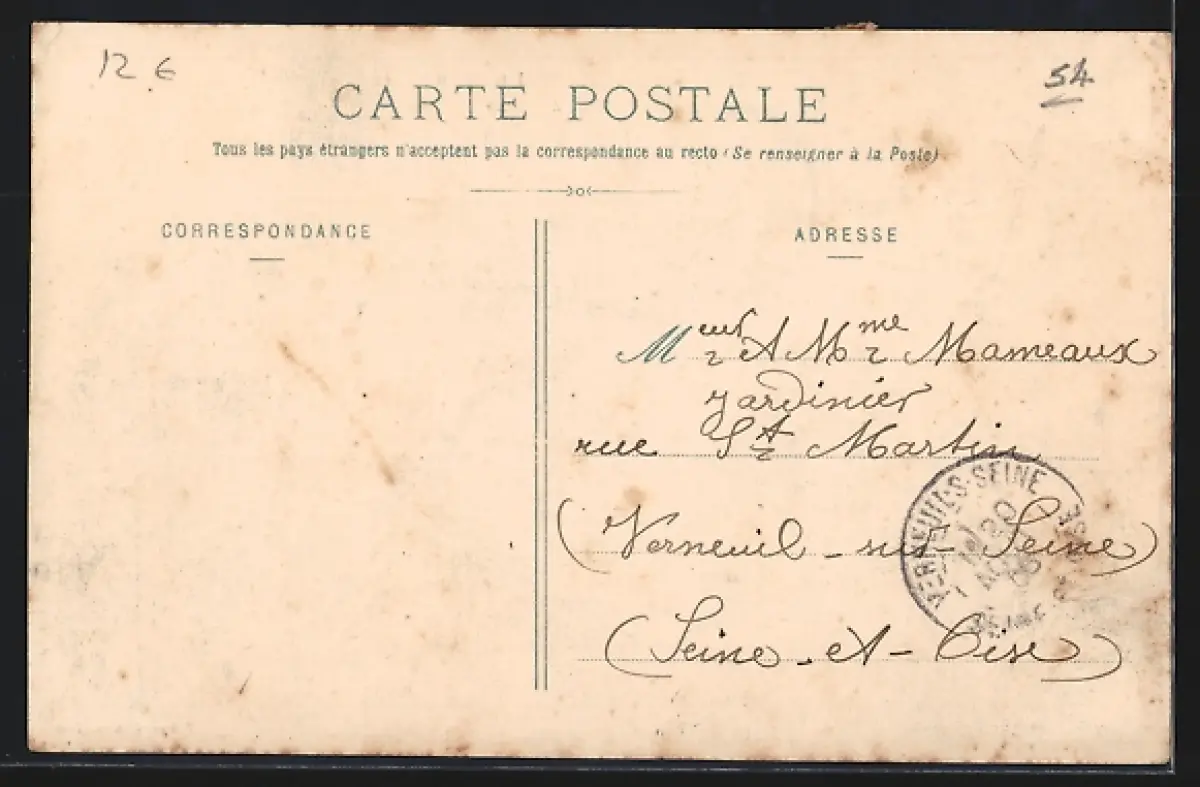 12 €
54
CARTE POSTALE
Tous les pays étrangers n'acceptent pas la correspondance au recto (Se renseigner à la Poste)
CORRESPONDANCE
ADRESSE
Meur et Mme Mameaux
jardinier
rue St Martin
(Verneuil-sur-Seine)
(Seine-et-Oise)
VERNEUIL-S-SEINE
20